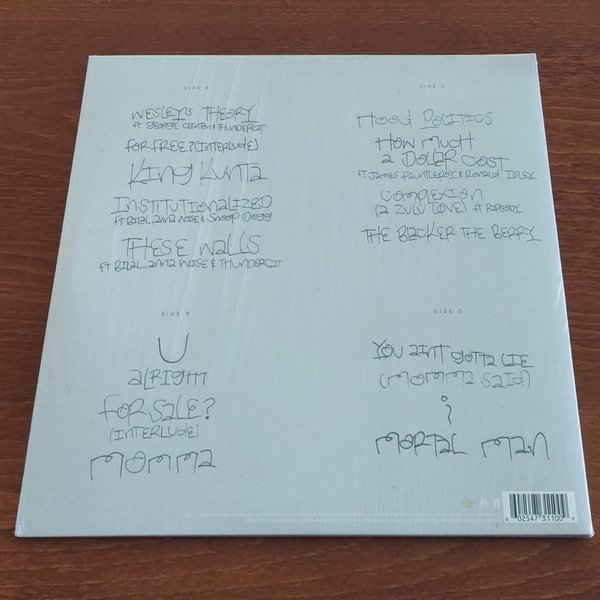 SIDE A
WESLEYS THEORY
FT GEORGE CLINTON & THUNDERCAT
FOR FREE? (INTERLUDE)
KING KUNTA
INSTITUTIONALIZED
FT BILAL, ANNA WISE & SNOOP DOGG
THESE WALLS
FT BILAL, ANNA WISE & THUNDERCAT
SIDE B
U
ALRIGHT
FOR SALE?
(INTERLUDE)
MOMMA
SIDE C
HOOD POLITICS
HOW MUCH
A DOLLAR COST
FT JAMES FAUNTLEROY & RONALD ISLEY
COMPLEXION
(A ZULU LOVE) FT RAPSODY
THE BLACKER THE BERRY
SIDE D
YOU AINT GOTTA LIE
(MOMMA SAID)
i
MORTAL MAN
6 02547 31100 9